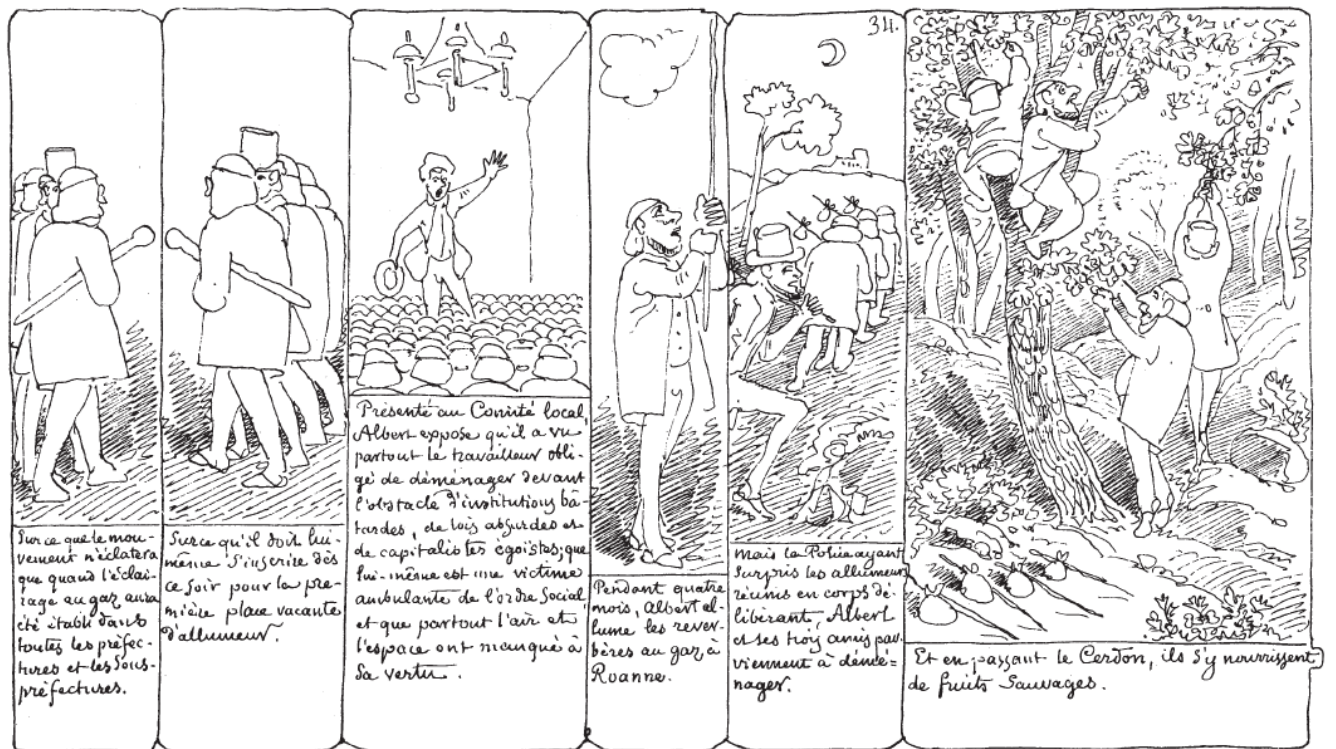 34.
Sur ce que le mou-
vement n'éclatera
que quand l'éclai-
rage au gaz aura
été établi dans
toutes les préfec-
tures et les Sous-
préfectures.
Sur ce qu'il doit lui-
même s'inscrire dès
ce soir pour la pre-
mière place vacante
d'allumeur.
Présenté au Comité local,
Albert expose qu'il a vu
partout le travailleur obli-
gé de déménager devant
l'obstacle d'institutions bâ-
tardes, de lois absurdes et
de capitalistes égoïstes; que
lui-même est une victime
ambulante de l'ordre Social
et que partout l'air et
l'espace ont manqué à
sa vertu.
Pendant quatre
mois, Albert al-
lume les réver-
bères au gaz à
Roanne.
Mais la Police ayant
surpris les allumeurs
réunis en corps dé-
libérant, Albert
et ses trois amis par-
viennent à démé=
nager.
Et en passant le Cerdon, ils s'y nourrissent
de fruits Sauvages.